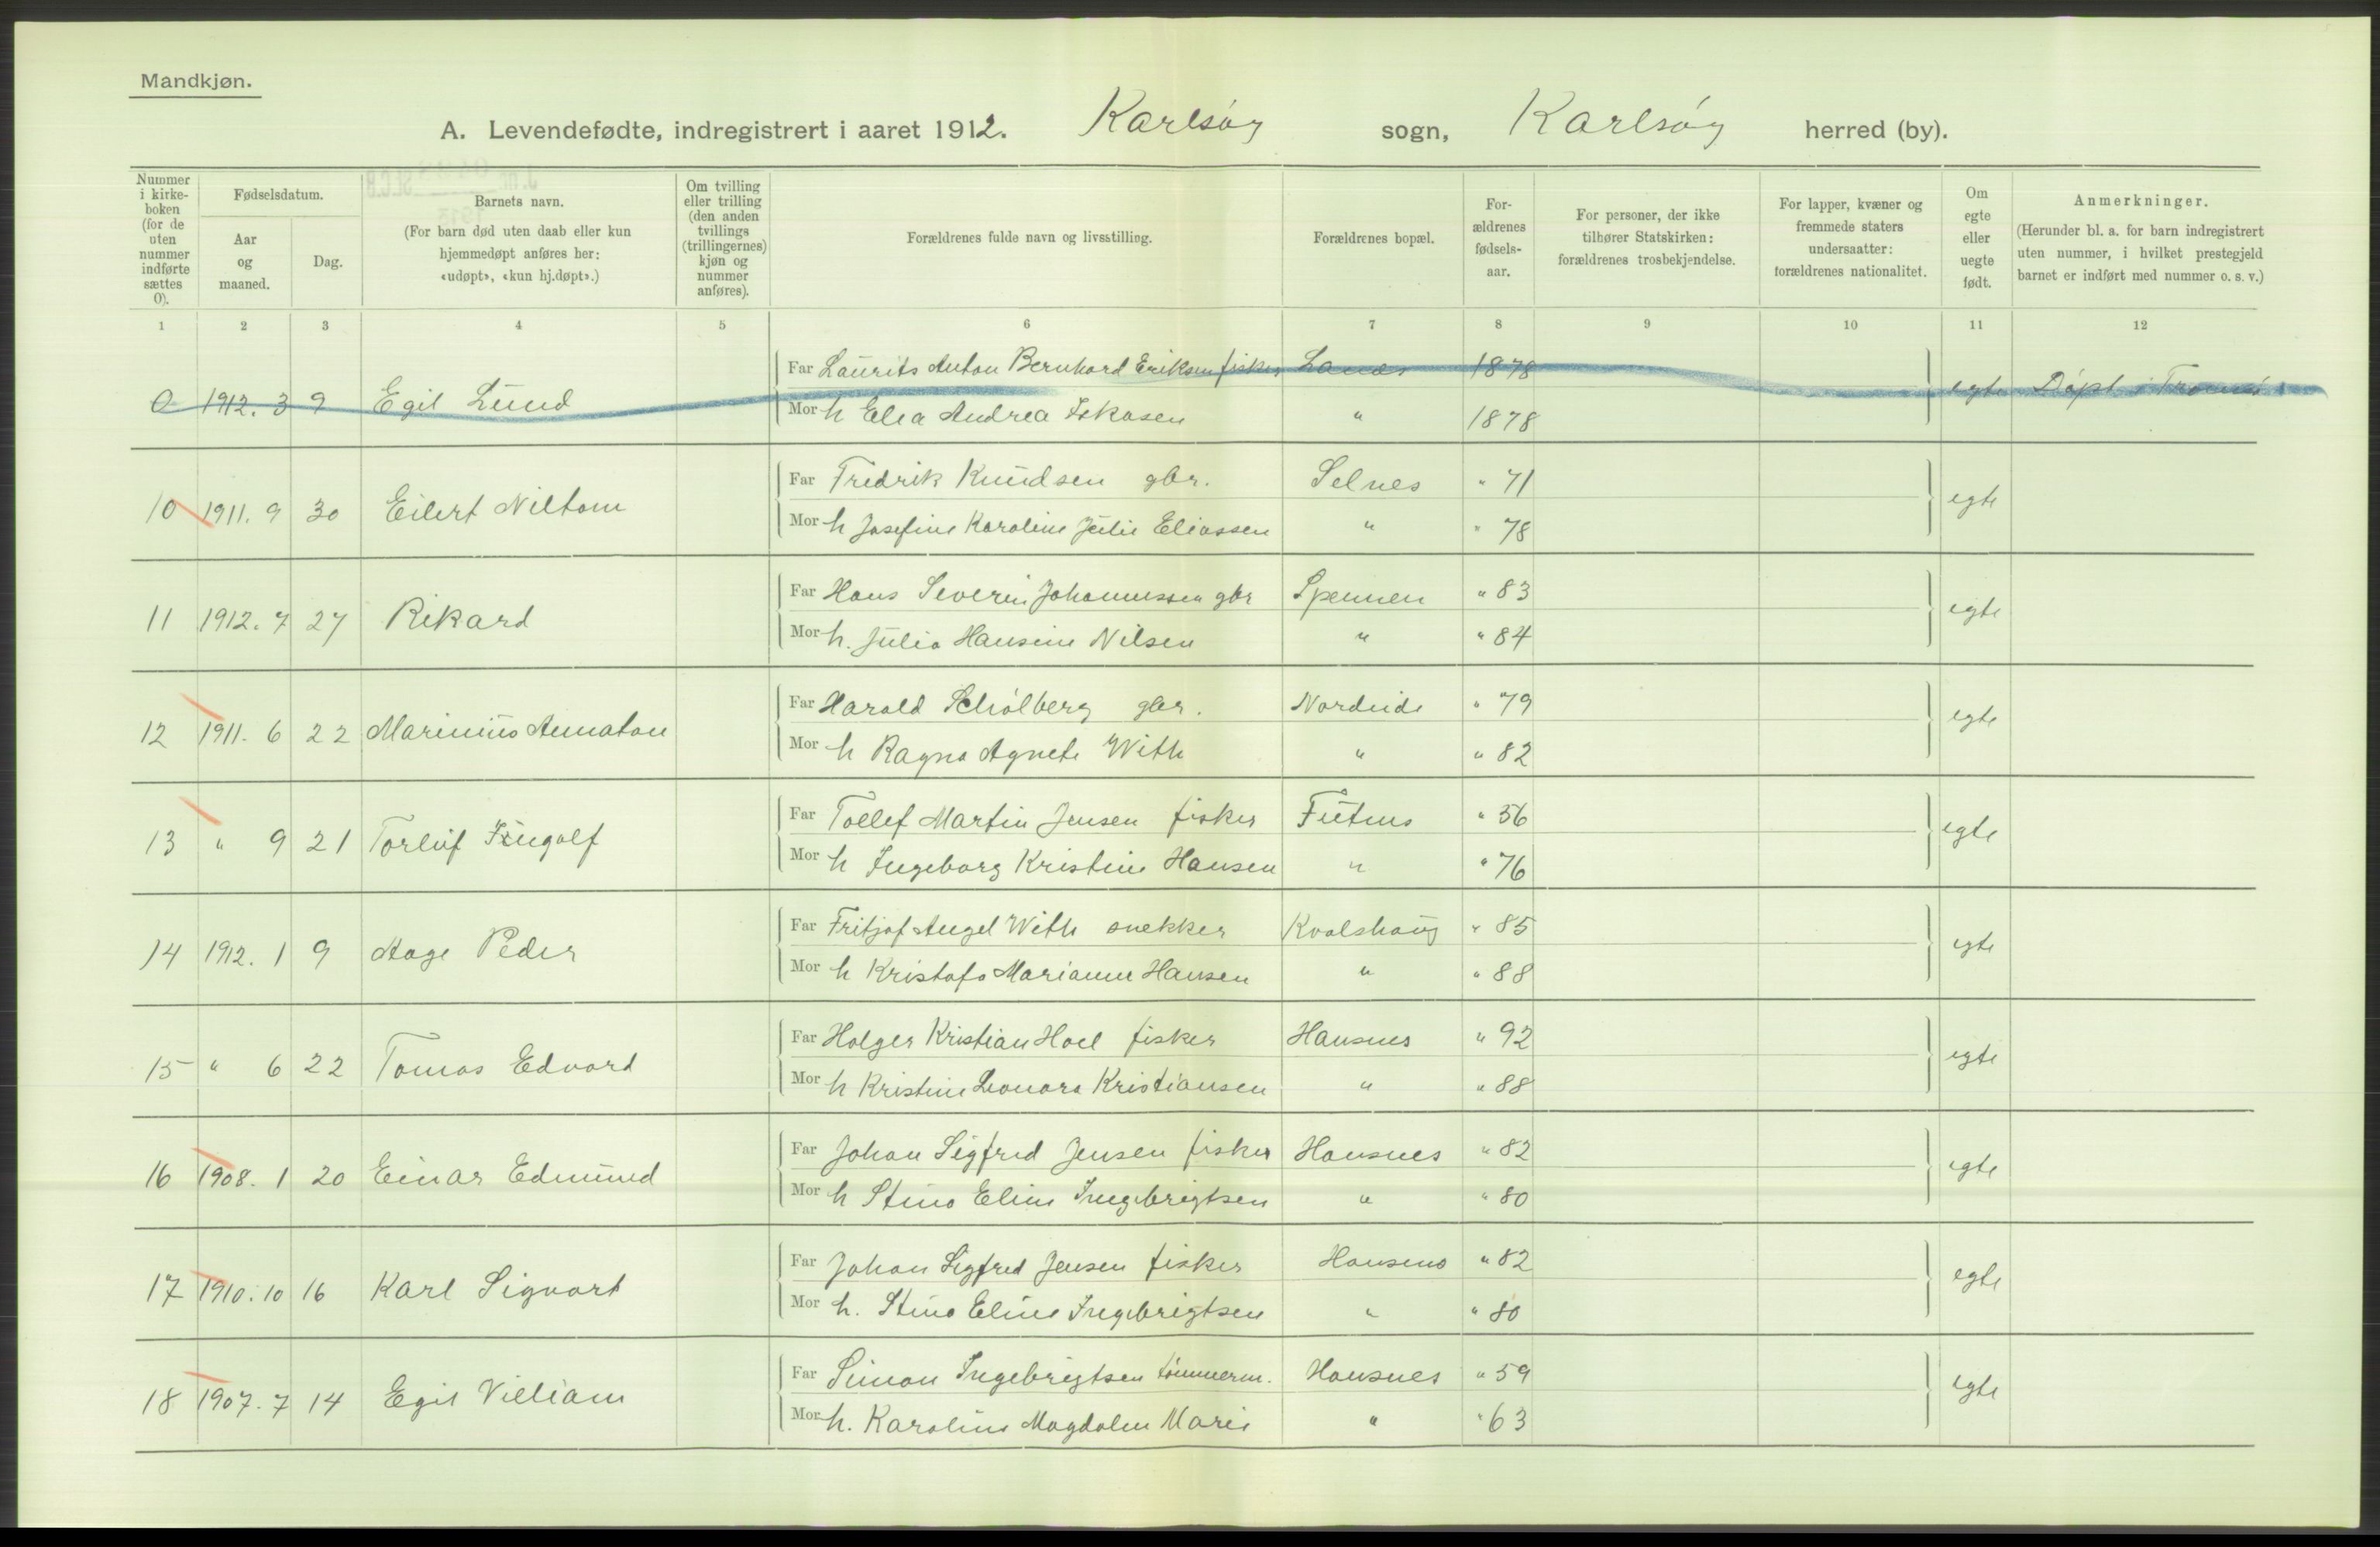 Mandkjøn.
A. Levendefødte, indregistrert i aaret 1912. Karlsøy sogn, Karlsøy herred (by).
Nummer i kirkeboken (for de uten nummer indførte sættes 0).
Fødselsdatum.
Aar og maaned.
Dag.
Barnets navn.
(For barn død uten daab eller kun hjemmedøpt anføres her: «udøpt», «kun hj.døpt».)
Om tvilling eller trilling (den anden tvillings (trillingernes) kjøn og nummer anføres).
Forældrenes fulde navn og livsstilling.
Forældrenes bopæl.
Forældrenes fødselsaar.
For personer, der ikke tilhører Statskirken: forældrenes trosbekjendelse.
For lapper, kvæner og fremmede staters undersaatter: forældrenes nationalitet.
Om egte eller uegte født.
Anmerkninger.
(Herunder bl. a. for barn indregistrert uten nummer, i hvilket prestegjeld barnet er indført med nummer o. s. v.)
1 2 3 4 5 6 7 8 9 10 11 12
Far Laurits Anton Bernhard Eriksen fisker 1878
0 1912. 3 9 Egil Lund egte Døpt i Tromsø
Mor h Elea Andrea " 1878
Far Fredrik Knudsen gbr. Selnes " 71
10 1911. 9 30 Eilert egte
Mor h Josefine Karoline Julie Eliassen " " 78
Far Hans Severin Johannessen gbr Spennen " 83
11 1912. 7 27 Rikard egte
Mor h. Julia Hansine Nilsen " " 84
Far Harald Schiølberg gbr. Nordeide " 79
12 1911. 6 22 Marinius egte
Mor h Ragna Agnete With " " 82
Far Tollef Martin Jensen fisker " 56
13 " 9 21 Torluf Ingolf egte
Mor h Ingeborg Kristine Hansen " " 76
Far Fritjof Angel With snekker Kvalshaug " 85
14 1912. 1 9 Aage Peder egte
Mor h Kristofa Marianne Hansen " " 88
Far Holger Kristian Hoel fisker Hansnes " 92
15 " 6 22 Tomas Edvard egte
Mor h Kristine Leonora Kristiansen " " 88
Far Johan Sigfred Jensen fisker Hansnes " 82
16 1908. 1 20 Einar Edmund egte
Mor h Stina Eline Ingebrigtsen " " 80
Far Johan Sigfred Jensen fisker Hansnes " 82
17 1910. 10 16 Karl Sigvart egte
Mor h. Stina Eline Ingebrigtsen " " 80
Far Simon Ingebrigtsen tømmerm. Hansnes " 59
18 1907. 7 14 Egil Villiam egte
Mor h. Karoline Magdalen Marie " " 63